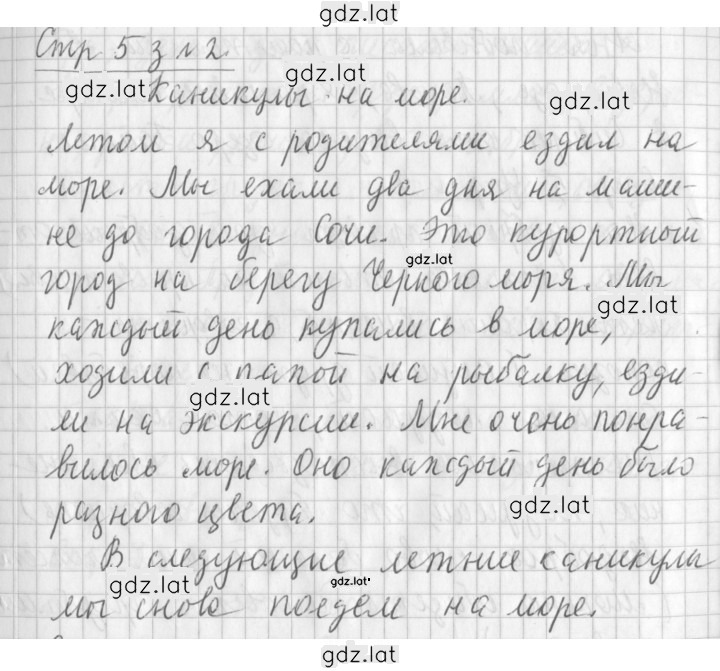 gdz.lat
Стр 5 з №2.
gdz.lat
gdz.lat
gdz.lat
Каникулы на море.
Летом я с родителями ездил на
море. Мы ехали два дня на маши-
не до города Сочи. Это курортный
gdz.lat
город на берегу Черного моря. Мы
gdz.lat
каждый день купались в море,
ходили с папой на рыбалку, езди-
gdz.lat
ли на экскурсии. Мне очень понра-
вилось море. Оно каждый день было
gdz.lat
разного цвета.
В следующие летние каникулы
gdz.lat
gdz.lat
мы снова поедем на море.
gdz.lat